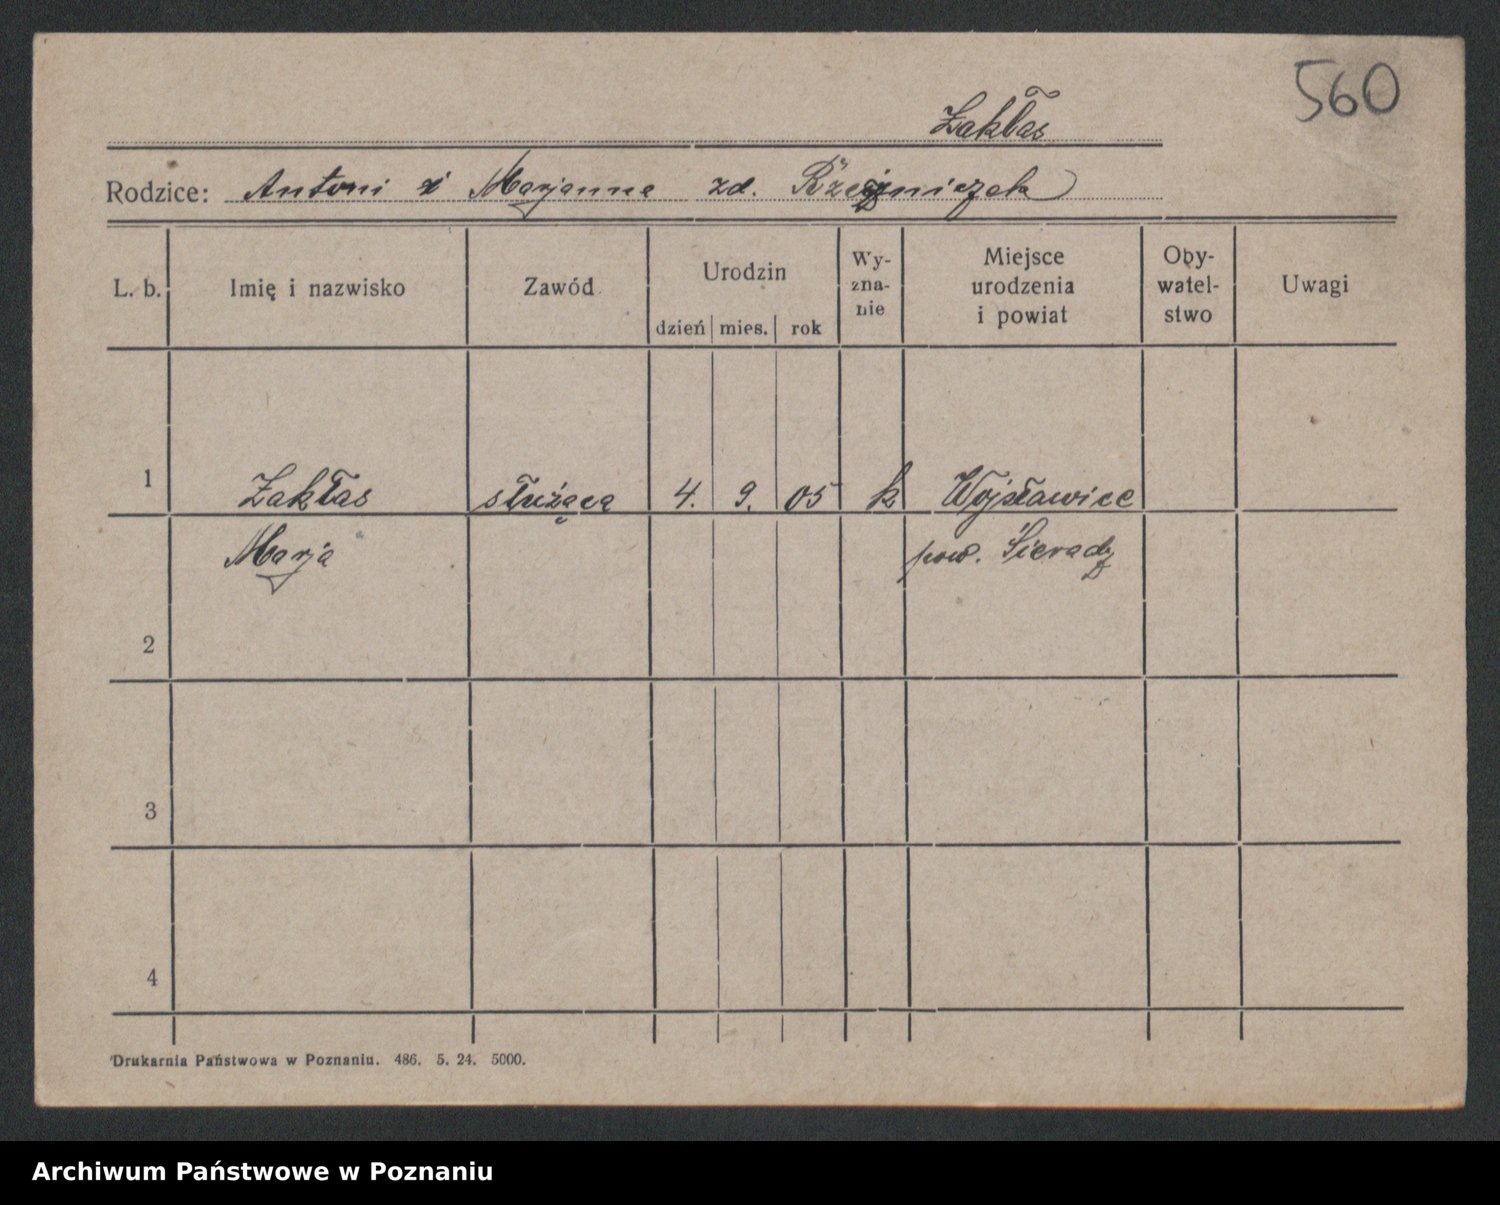 560
Zakłas
Rodzice: Antoni i Marjanna zd.
L. b. Imię i nazwisko Zawód Urodzin dzień mies. rok Wy-zna-nie Miejsce urodzenia i powiat Oby-watel-stwo Uwagi
1 Zakłas służąca 4. 9. 05 k Wojsławice
Marja pow. Sieradz
2
3
4
Drukarnia Państwowa w Poznaniu. 486. 5. 24. 5000.
Archiwum Państwowe w Poznaniu